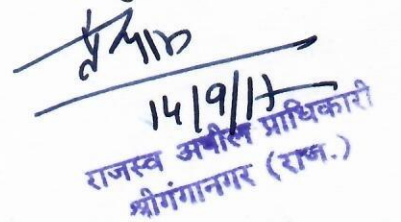 14/9/17
राजस्व अपील प्राधिकारी
श्रीगंगानगर (राज.)